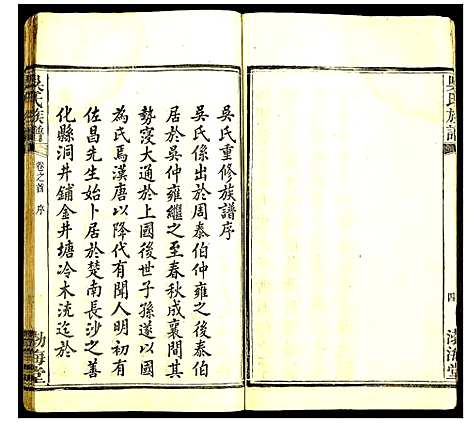 吳氏族譜
四
渤海堂
吳氏重修族譜序
吳氏係出於周泰伯仲雍之後泰伯
居於吳仲雍繼之至春秋成襄間其
勢寖大通於上國後世子孫遂以國
為氏焉漢唐以降代有聞人明初有
佐昌先生始卜居於楚南長沙之善
化縣洞井鋪金井塘冷木流迄於
吳氏族譜
卷之首
序
渤海堂